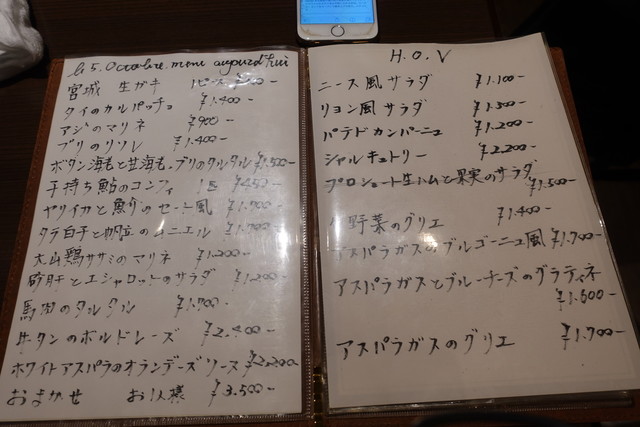 le 5. Octobre. menu aujourd'hui
宮城 生ガキ 1ピース
タイのカルパッチョ ¥1.400-
アジのマリネ ¥900-
ブリのリソレ ¥1.400-
ボタン海老と甘海老、ブリのタルタル ¥1,500-
子持ち鮎のコンフィ ¥450-
ヤリイカと の セート風 ¥1.700-
タラ白子と帆立のムニエル ¥1.700-
大山鶏ササミのマリネ ¥1.200-
砂肝とエシャロットのサラダ ¥1.200-
馬肉のタルタル ¥1.700-
牛タンのボルドレーズ ¥2.400-
ホワイトアスパラのオランデーズソース ¥2.200-
おまかせ お1人様 ¥3.500-
H.O.V
ニース風サラダ ¥1.100-
リヨン風サラダ ¥1.500-
パテドカンパーニュ ¥1.200-
シャルキュトリー ¥2.200-
プロシュート生ハムと果実のサラダ ¥1.500-
野菜のグリエ ¥1.400-
アスパラガスのブルゴーニュ風 ¥1.700-
アスパラガスとブルーチーズのグラティネ
¥1.600-
アスパラガスのグリエ ¥1.700-